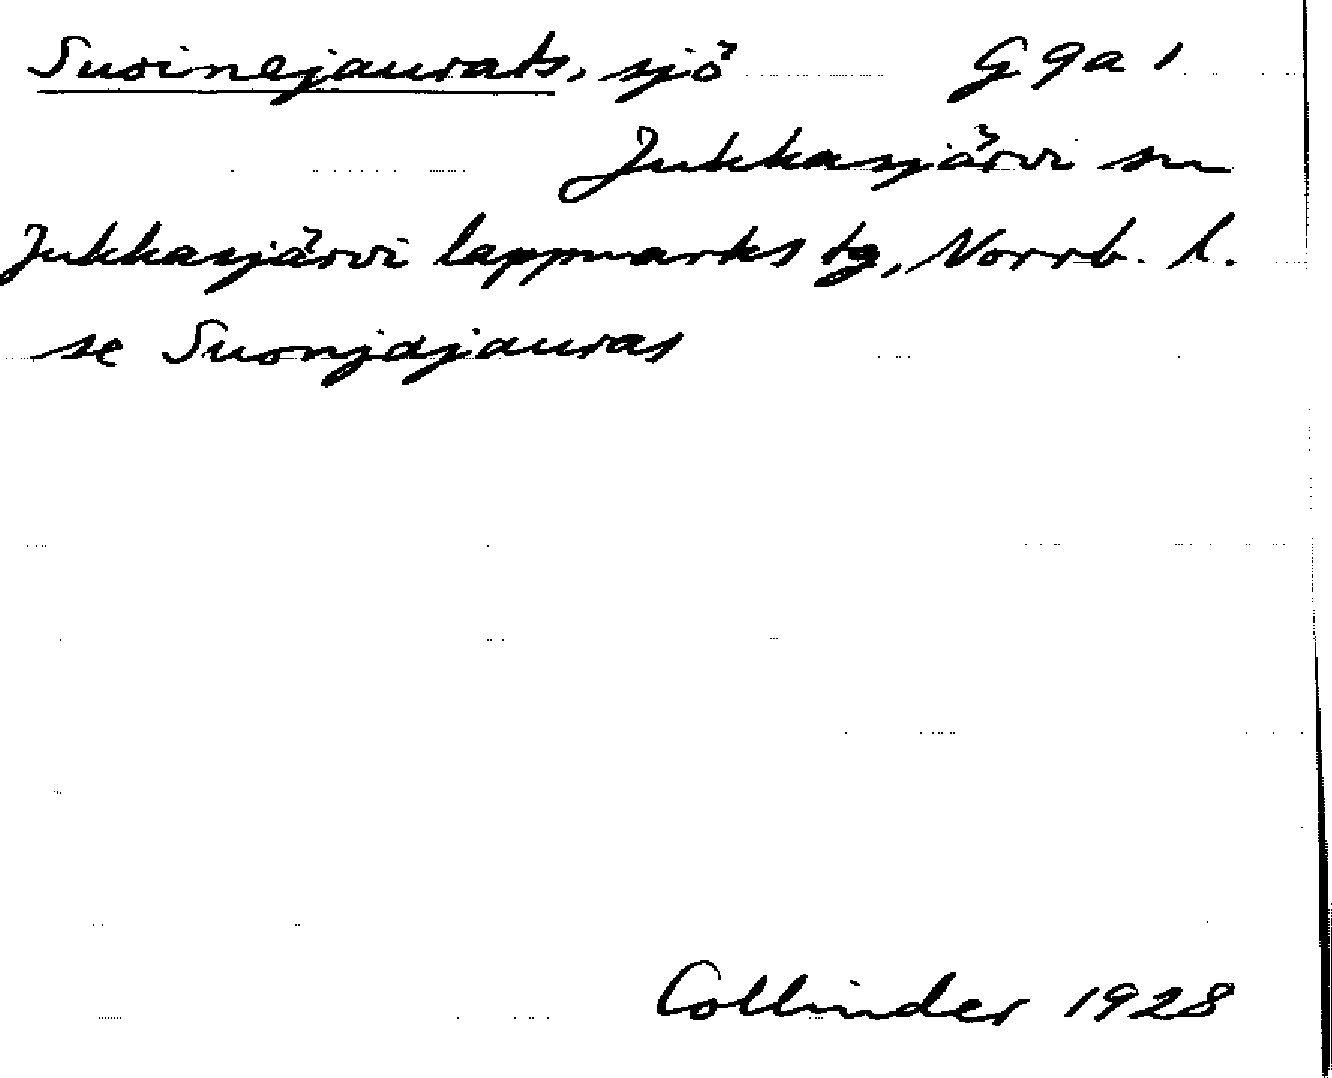 Suoinejaurats, sjö G 9 a 1
Jukkasjärvi sn
Jukkasjärvi lappmarks tg, Norrb. l.
se Suonjajauras
Collinder 1928